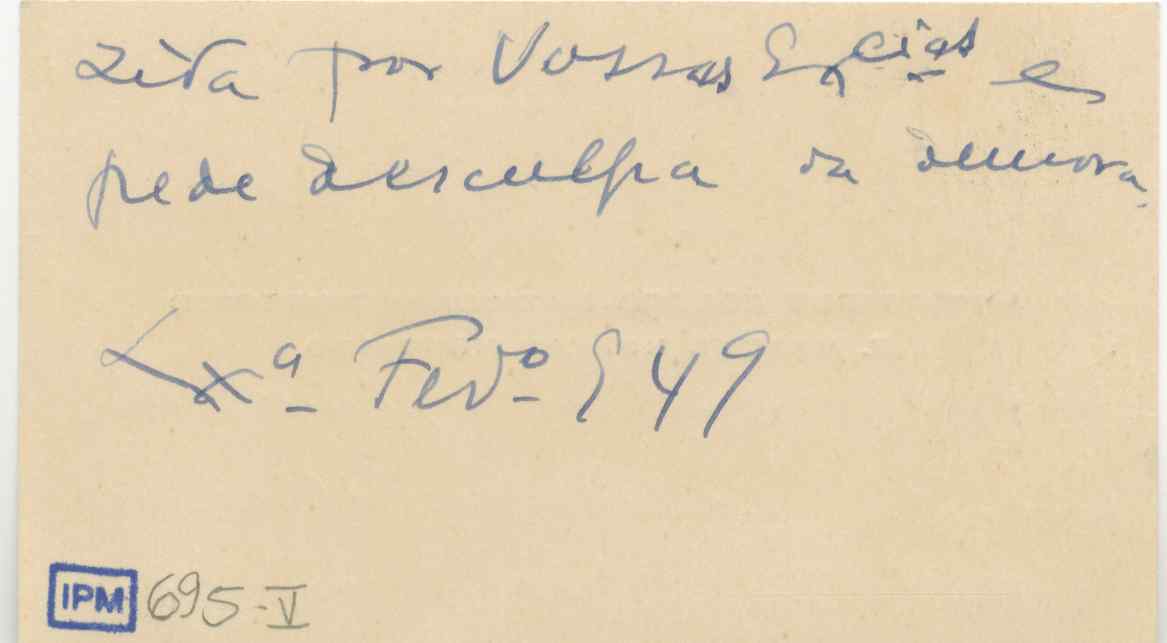 zida por Vossas Excias e
pede desculpa da demora.
Lxª Fevº 949
IPM 695-V